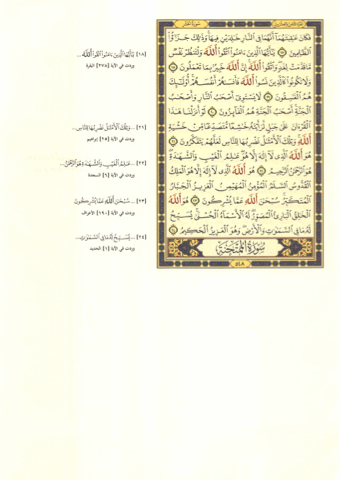 فَكَانَ عَٰقِبَتَهُمَآ أَنَّهُمَا فِى ٱلنَّارِ خَٰلِدَيْنِ فِيهَا وَذَٰلِكَ جَزَٰٓؤُا۟
ٱلظَّٰلِمِينَ ۝ يَٰٓأَيُّهَا ٱلَّذِينَ ءَامَنُوا۟ ٱتَّقُوا۟ ٱللَّهَ وَلْتَنظُرْ نَفْسٌ
مَّا قَدَّمَتْ لِغَدٍ وَٱتَّقُوا۟ ٱللَّهَ إِنَّ ٱللَّهَ خَبِيرٌۢ بِمَا تَعْمَلُونَ ۝
وَلَا تَكُونُوا۟ كَٱلَّذِينَ نَسُوا۟ ٱللَّهَ فَأَنسَىٰهُمْ أَنفُسَهُمْ أُو۟لَٰٓئِكَ
هُمُ ٱلْفَٰسِقُونَ ۝ لَا يَسْتَوِىٓ أَصْحَٰبُ ٱلنَّارِ وَأَصْحَٰبُ
ٱلْجَنَّةِ أَصْحَٰبُ ٱلْجَنَّةِ هُمُ ٱلْفَآئِزُونَ ۝ لَوْ أَنزَلْنَا هَٰذَا
ٱلْقُرْءَانَ عَلَىٰ جَبَلٍ لَّرَأَيْتَهُۥ خَٰشِعًا مُّتَصَدِّعًا مِّنْ خَشْيَةِ
ٱللَّهِ وَتِلْكَ ٱلْأَمْثَٰلُ نَضْرِبُهَا لِلنَّاسِ لَعَلَّهُمْ يَتَفَكَّرُونَ ۝
هُوَ ٱللَّهُ ٱلَّذِى لَآ إِلَٰهَ إِلَّا هُوَ عَٰلِمُ ٱلْغَيْبِ وَٱلشَّهَٰدَةِ
هُوَ ٱلرَّحْمَٰنُ ٱلرَّحِيمُ ۝ هُوَ ٱللَّهُ ٱلَّذِى لَآ إِلَٰهَ إِلَّا هُوَ ٱلْمَلِكُ
ٱلْقُدُّوسُ ٱلسَّلَٰمُ ٱلْمُؤْمِنُ ٱلْمُهَيْمِنُ ٱلْعَزِيزُ ٱلْجَبَّارُ
ٱلْمُتَكَبِّرُ سُبْحَٰنَ ٱللَّهِ عَمَّا يُشْرِكُونَ ۝ هُوَ ٱللَّهُ
ٱلْخَٰلِقُ ٱلْبَارِئُ ٱلْمُصَوِّرُ لَهُ ٱلْأَسْمَآءُ ٱلْحُسْنَىٰ يُسَبِّحُ
لَهُۥ مَا فِى ٱلسَّمَٰوَٰتِ وَٱلْأَرْضِ وَهُوَ ٱلْعَزِيزُ ٱلْحَكِيمُ ۝
سُورَةُ ٱلْمُمْتَحَنَةِ
٥٤٨
[١٨] يَٰٓأَيُّهَا ٱلَّذِينَ ءَامَنُوا۟ ٱتَّقُوا۟ ٱللَّهَ ...
وردت في الآية [٢٧٨] البقرة
[٢١] ... وَتِلْكَ ٱلْأَمْثَٰلُ نَضْرِبُهَا لِلنَّاسِ ...
وردت في الآية [٢٥] إبراهيم
[٢٢] ... عَٰلِمُ ٱلْغَيْبِ وَٱلشَّهَٰدَةِ هُوَ ٱلرَّحْمَٰنُ ...
وردت في الآية [٦] السجدة
[٢٣] ... سُبْحَٰنَ ٱللَّهِ عَمَّا يُشْرِكُونَ
وردت في الآية [١٩٠] الأعراف
[٢٤] ... يُسَبِّحُ لَهُۥ مَا فِى ٱلسَّمَٰوَٰتِ ...
وردت في الآية [١] الحديد